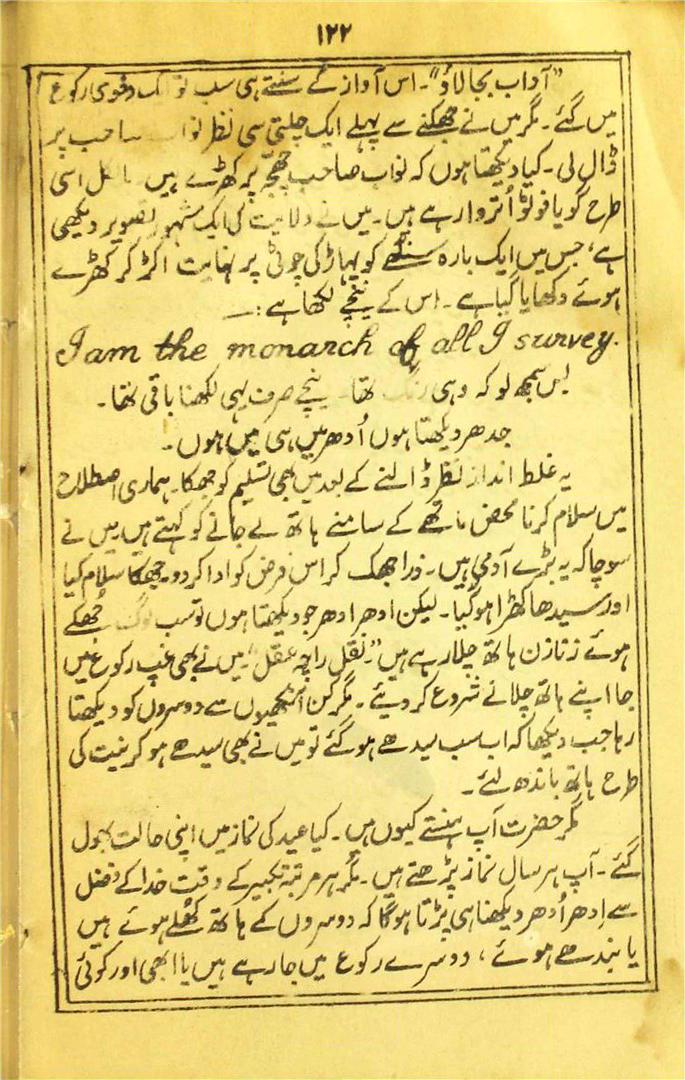 ۱۲۲
"آداب بجا لاؤ"۔ اس آواز کے سنتے ہی سب تو رکوع
میں گئے۔ مگر میں نے جھکنے سے پہلے ایک چلتی سی نظر نواب صاحب پر
ڈال لی۔ کیا دیکھتا ہوں کہ نواب صاحب چھجّہ پر کھڑے ہیں بالکل اسی
طرح گویا فوٹو اُتروا رہے ہیں۔ میں نے ولایت کی ایک مشہور تصویر دیکھی
ہے، جس میں ایک بارہ سنگھے کو پہاڑ کی چوٹی پر نہایت اکڑ کر کھڑے
ہوئے دکھایا گیا ہے۔ اس کے نیچے لکھا ہے:۔
I am the monarch of all I survey.
بس سمجھ لو کہ وہی رنگ تھا۔ نیچے صرف یہی لکھنا باقی تھا۔
جدھر دیکھتا ہوں اُدھر میں ہی میں ہوں۔
یہ غلط انداز نظر ڈالنے کے بعد میں بھی تسلیم کو جھکا۔ ہماری اصطلاح
میں سلام کرنا محض ماتھے کے سامنے ہاتھ لے جانے کو کہتے ہیں میں نے
سوچا کہ یہ بڑے آدمی ہیں۔ ذرا جھک کر اس فرض کو ادا کر دو۔ جھکا سلام کیا
اور سیدھا کھڑا ہو گیا۔ لیکن ادھر ادھر جو دیکھتا ہوں تو سب لوگ جھکے
ہوئے زنازن ہاتھ چلا رہے ہیں "نقل را چہ عقل" میں نے بھی غپ رکوع میں
جا اپنے ہاتھ چلانے شروع کر دیئے۔ مگر کن انکھیوں سے دوسروں کو دیکھتا
رہا جب دیکھا کہ اب سب سیدھے ہو گئے تو میں نے بھی سیدھے ہو کر نیت کی
طرح ہاتھ باندھ لئے۔
مگر حضرت آپ ہنستے کیوں ہیں۔ کیا عید کی نماز میں اپنی حالت بھول
گئے۔ آپ ہر سال نماز پڑھتے ہیں۔ مگر ہر مرتبہ تکبیر کے وقت خدا کے فضل
سے اِدھر اُدھر دیکھنا ہی پڑتا ہو گا کہ دوسروں کے ہاتھ کھلے ہوئے ہیں
یا بندھے ہوئے، دوسرے رکوع میں جا رہے ہیں یا ابھی اور کوئی